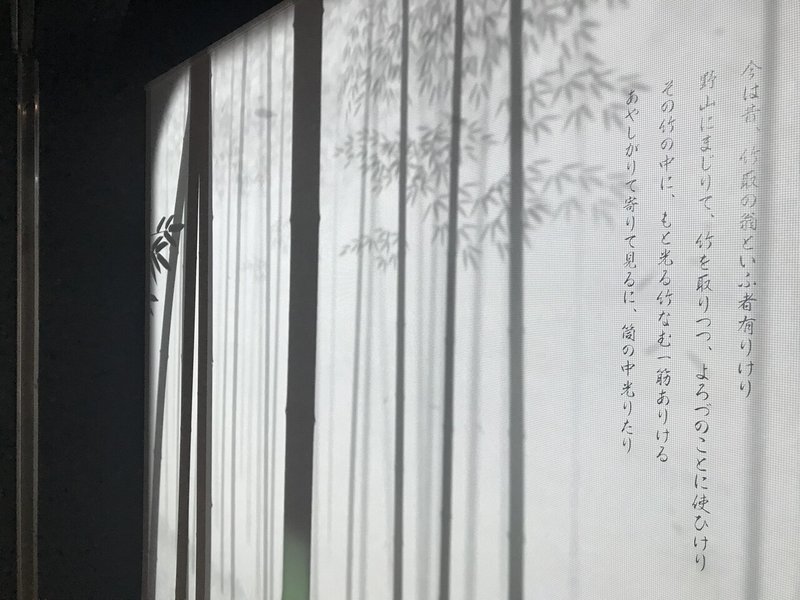 今は昔、竹取の翁といふ者有りけり
野山にまじりて、竹を取りつつ、よろづのことに使ひけり
その竹の中に、もと光る竹なむ一筋ありける
あやしがりて寄りて見るに、筒の中光りたり